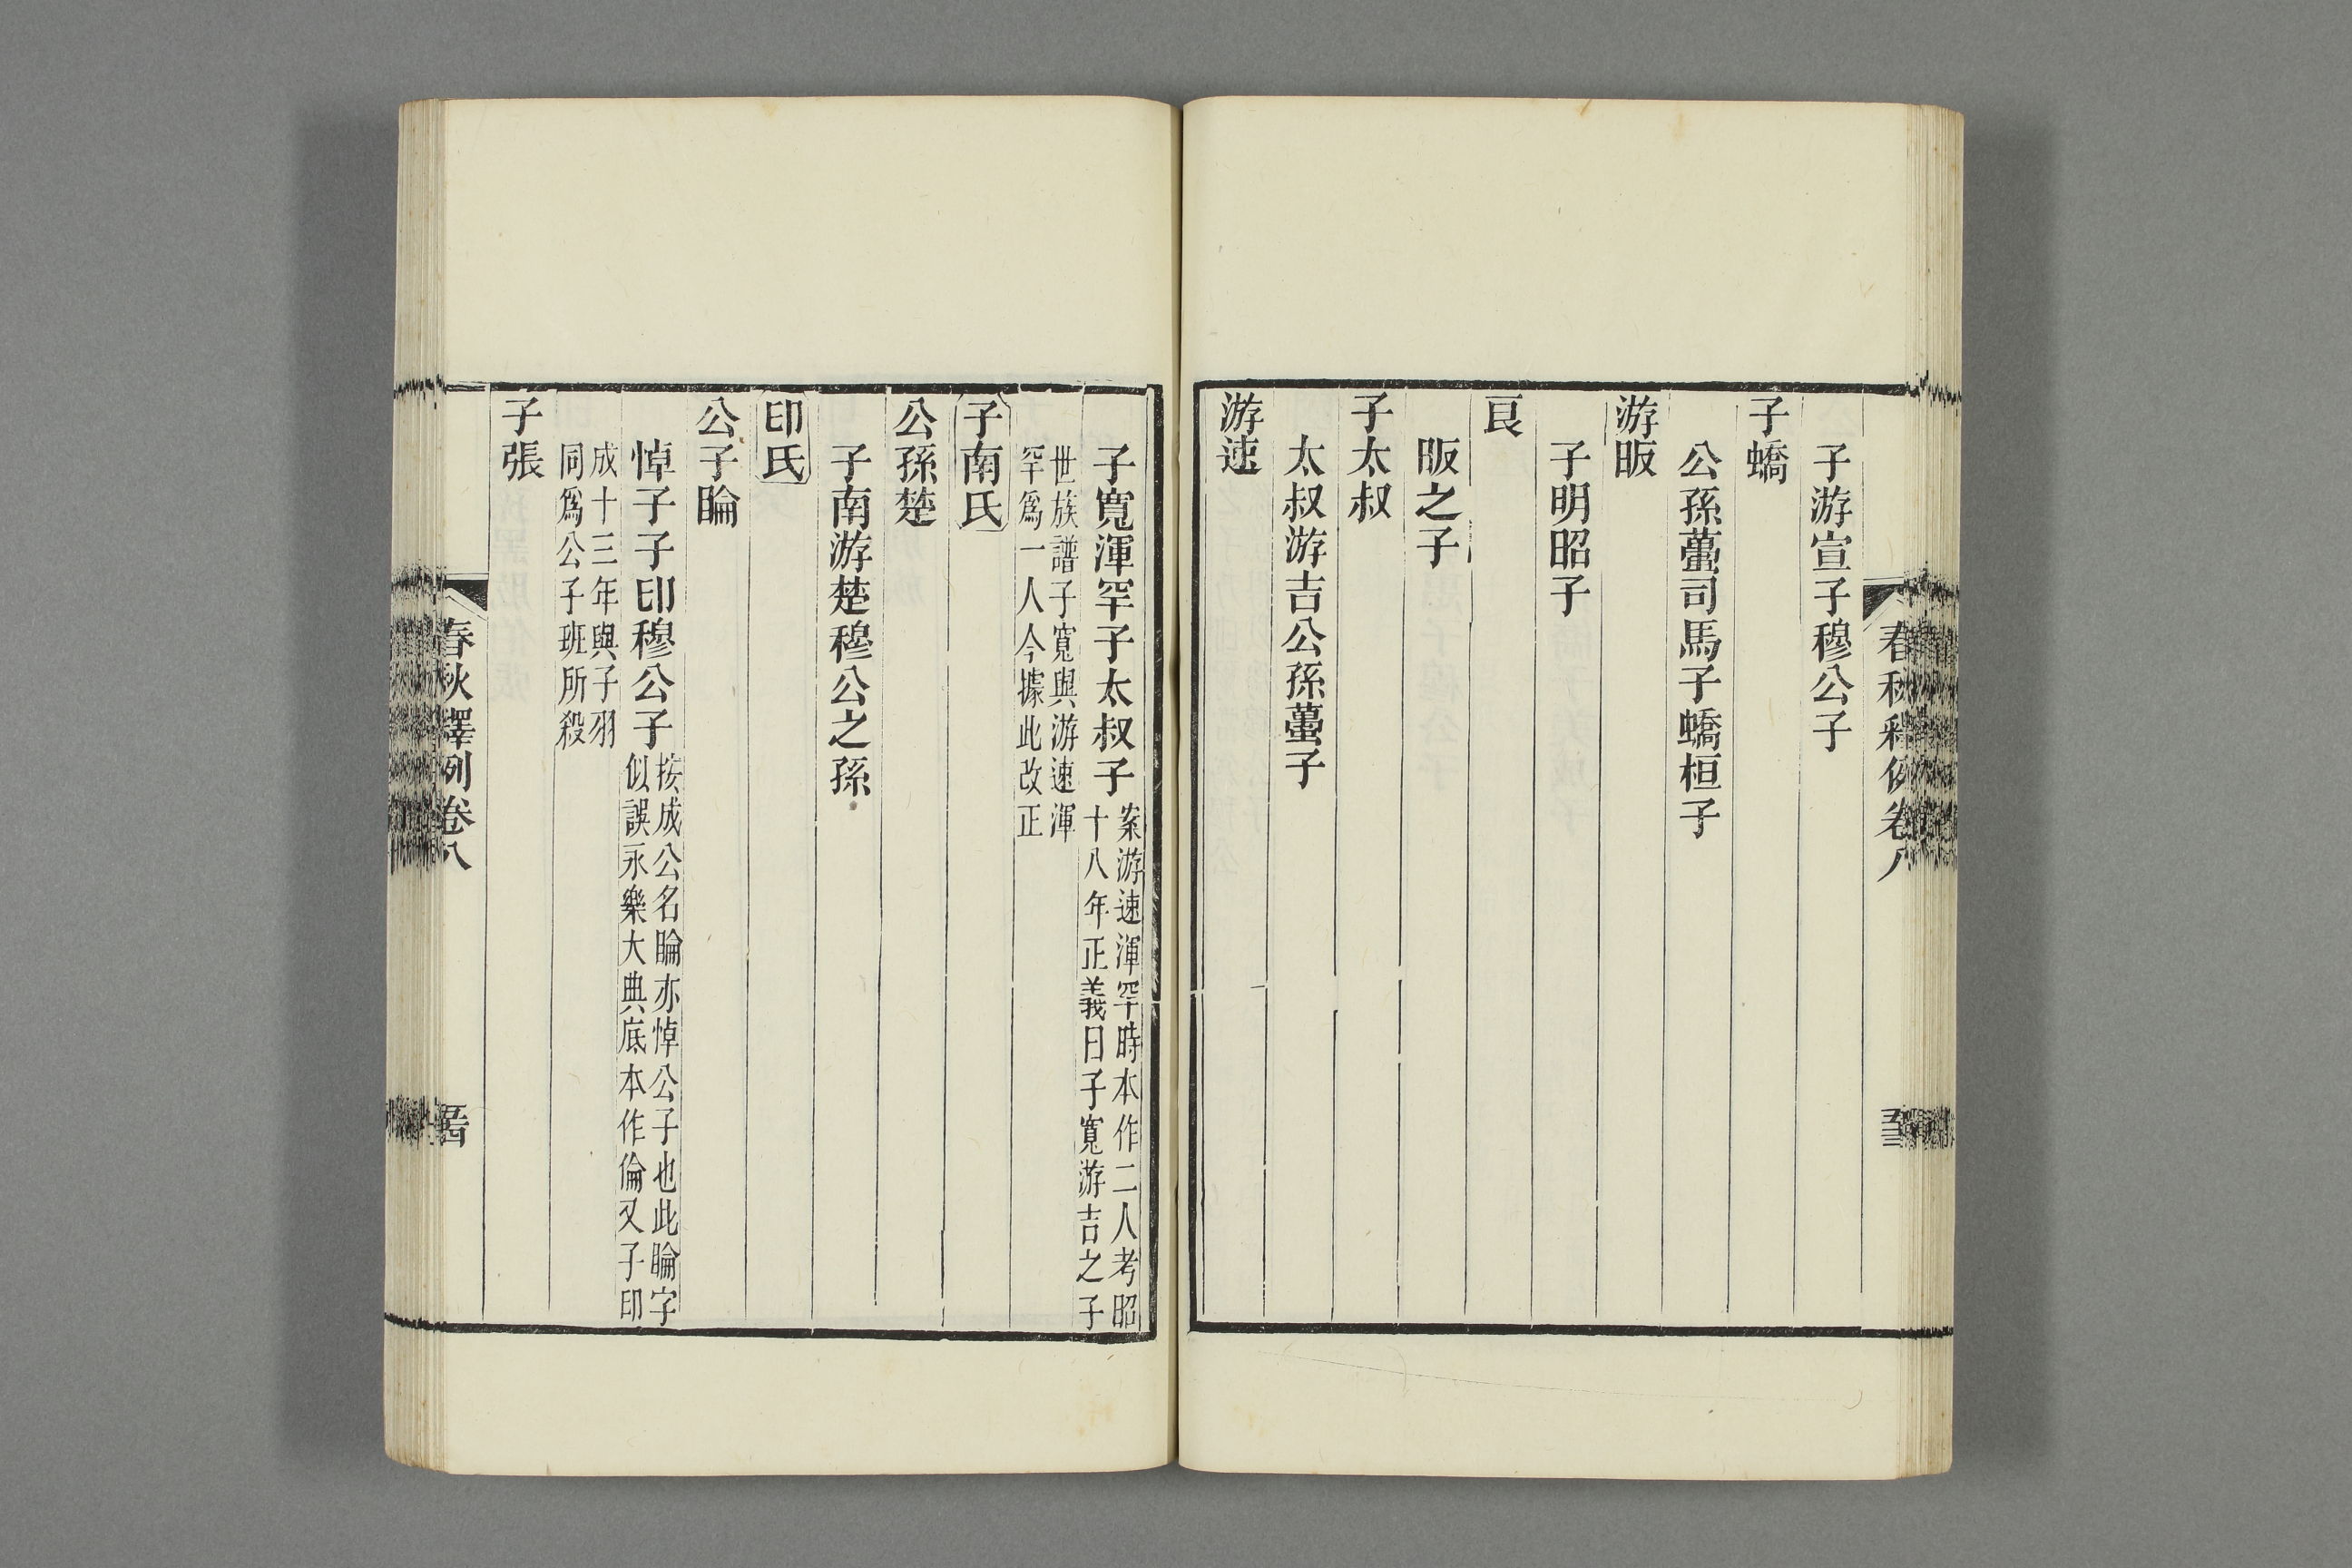 春秋釋例卷八
子游宣子穆公子
子蟜
公孫蠆司馬子蟜桓子
游昄
子明昭子
良
昄之子
子太叔
太叔游吉公孫蠆子
游速
子寬渾罕子太叔子
案游速渾罕時本作二人考昭
十八年正義曰子寬游吉之子
世族譜子寬與游速渾
罕爲一人今據此改正
子南氏
公孫楚
子南游楚穆公之孫
印氏
公子睔
悼子子印穆公子
按成公名睔亦悼公子也此睔字
似誤永樂大典底本作倫又子印
成十三年與子羽
同爲公子班所殺
子張
春秋釋例卷八